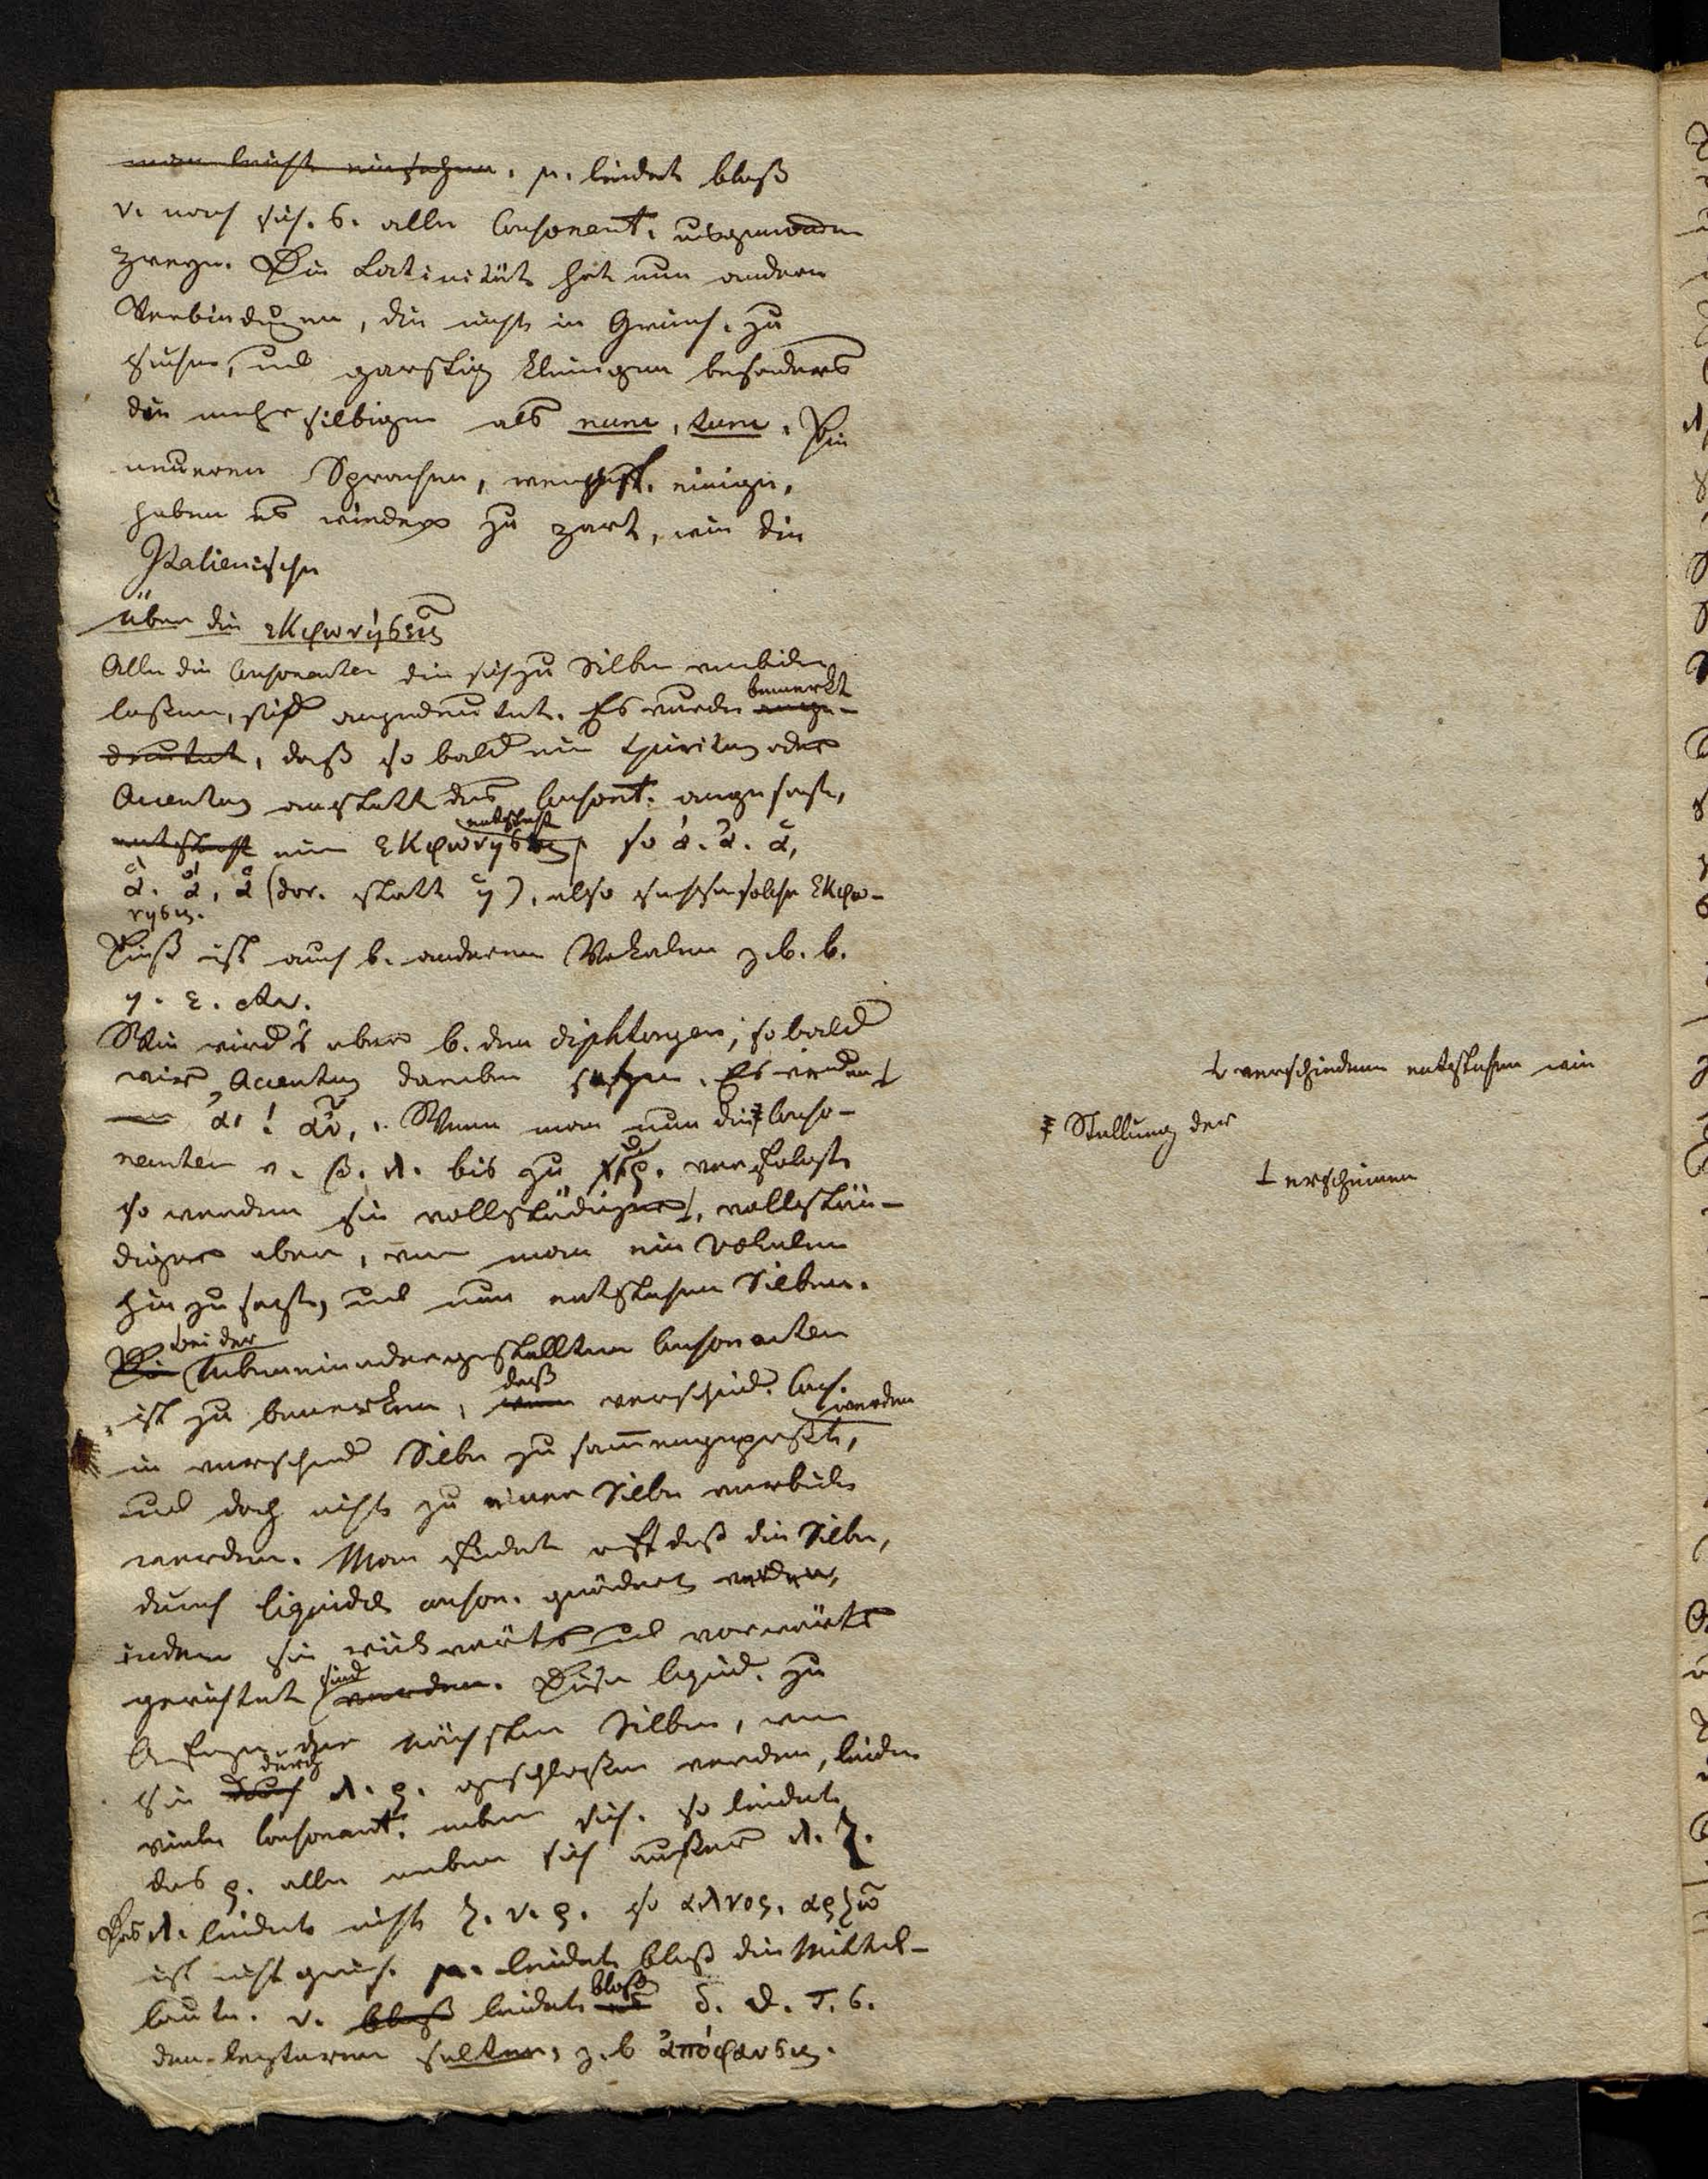 man leicht einsehen. μ. leidet blaß
ν. nach sich. σ. alle Consonant. ausgenommen
zweye. Die Latinität hat nun andere
Verbindungen, die nicht in Griech. zu
suchen, und garstig klingen besonders
die mehrsilbigen als nunc, tunc. Die
neueren Sprachen, einige,
haben es wieder zu zart, wie die
Italienische
über die εκφωνήσεις
Alle die Consonanten die sich zu Silben verbinden
laßen, sind angedeutet. Es wurde bemerkt ange-
deutet, daß so bald ein Spiritus oder
Accentus anstatt des Consont. angesetzt,
entsteht eine εκφωνησις entsteht so ἀ. ἁ.
(dor. statt η), also sechse solche εκφω-
νησις.
Dieß ist auch b. anderen Vokalen z. b. b.
η. ε. etc.
Wie wird's aber b. den diphtongen, so bald
wir Accentus darüber setzen. Es werden
Wenn man nun die Conso-
nanten β. λ. bis zu verfolgt
so werden sie vollständiger, vollstän-
diger aber, wenn man ein Vokalen
hinzu setzt, und nun entstehen Silben.
Die bei der nebeneinandergestellten Consonanten
ist zu bemerken, wenn daß verschied. Cons.
in verschied Silbe zusammengepreßt, werden
und doch nicht zu einer Silbe verbunden
werden. Man findet oft daß die Silbe,
durch liquida conson. geändert werden,
indem sie rückwärts und vorwärts
gerichtet sind werden. Diese liquid. zu
Anfange der nächsten Silben, wenn
sie durch durch λ. ρ. geschloßen werden, leiden
viele Consonant. neben sich. so leidet
das ρ. alle neben sich außer λ. ζ.
Das λ. leidet nicht ζ. ν. ρ. so αλνος. αρζω
ist nicht griech. μ. leidet bloß die Mittel-
laute. ν. bloß leidet bloß δ. θ. τ. σ.
den letzteren selten, z. b ἀπόφανσις.
verschiedene entstehen wie
Stellung der
erscheinen